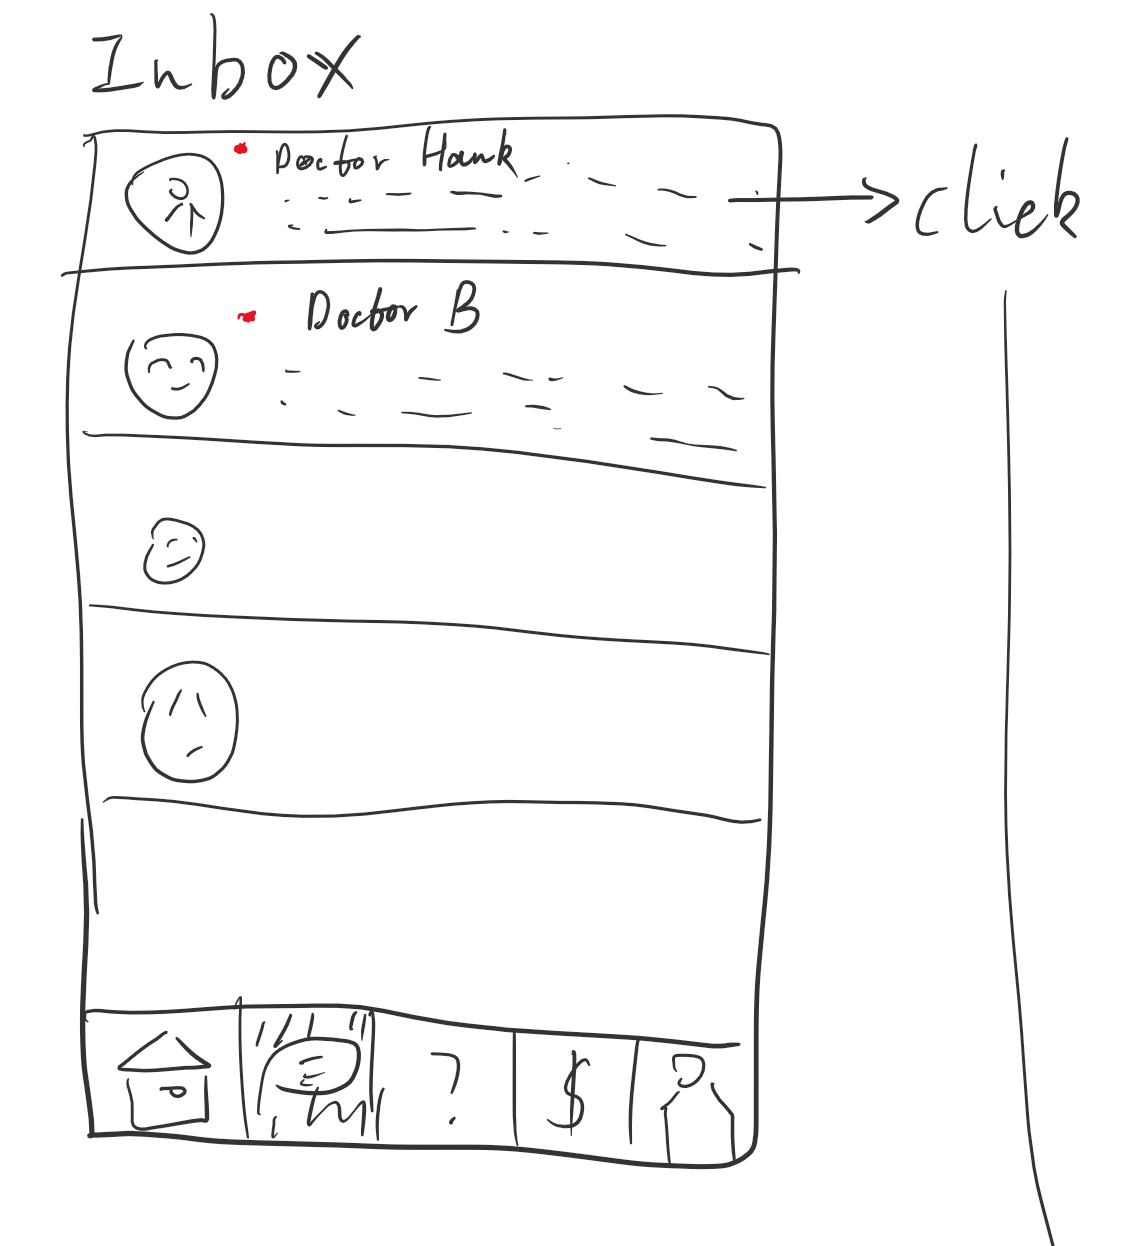 Inbox
Doctor Hank
click
Doctor B
? $